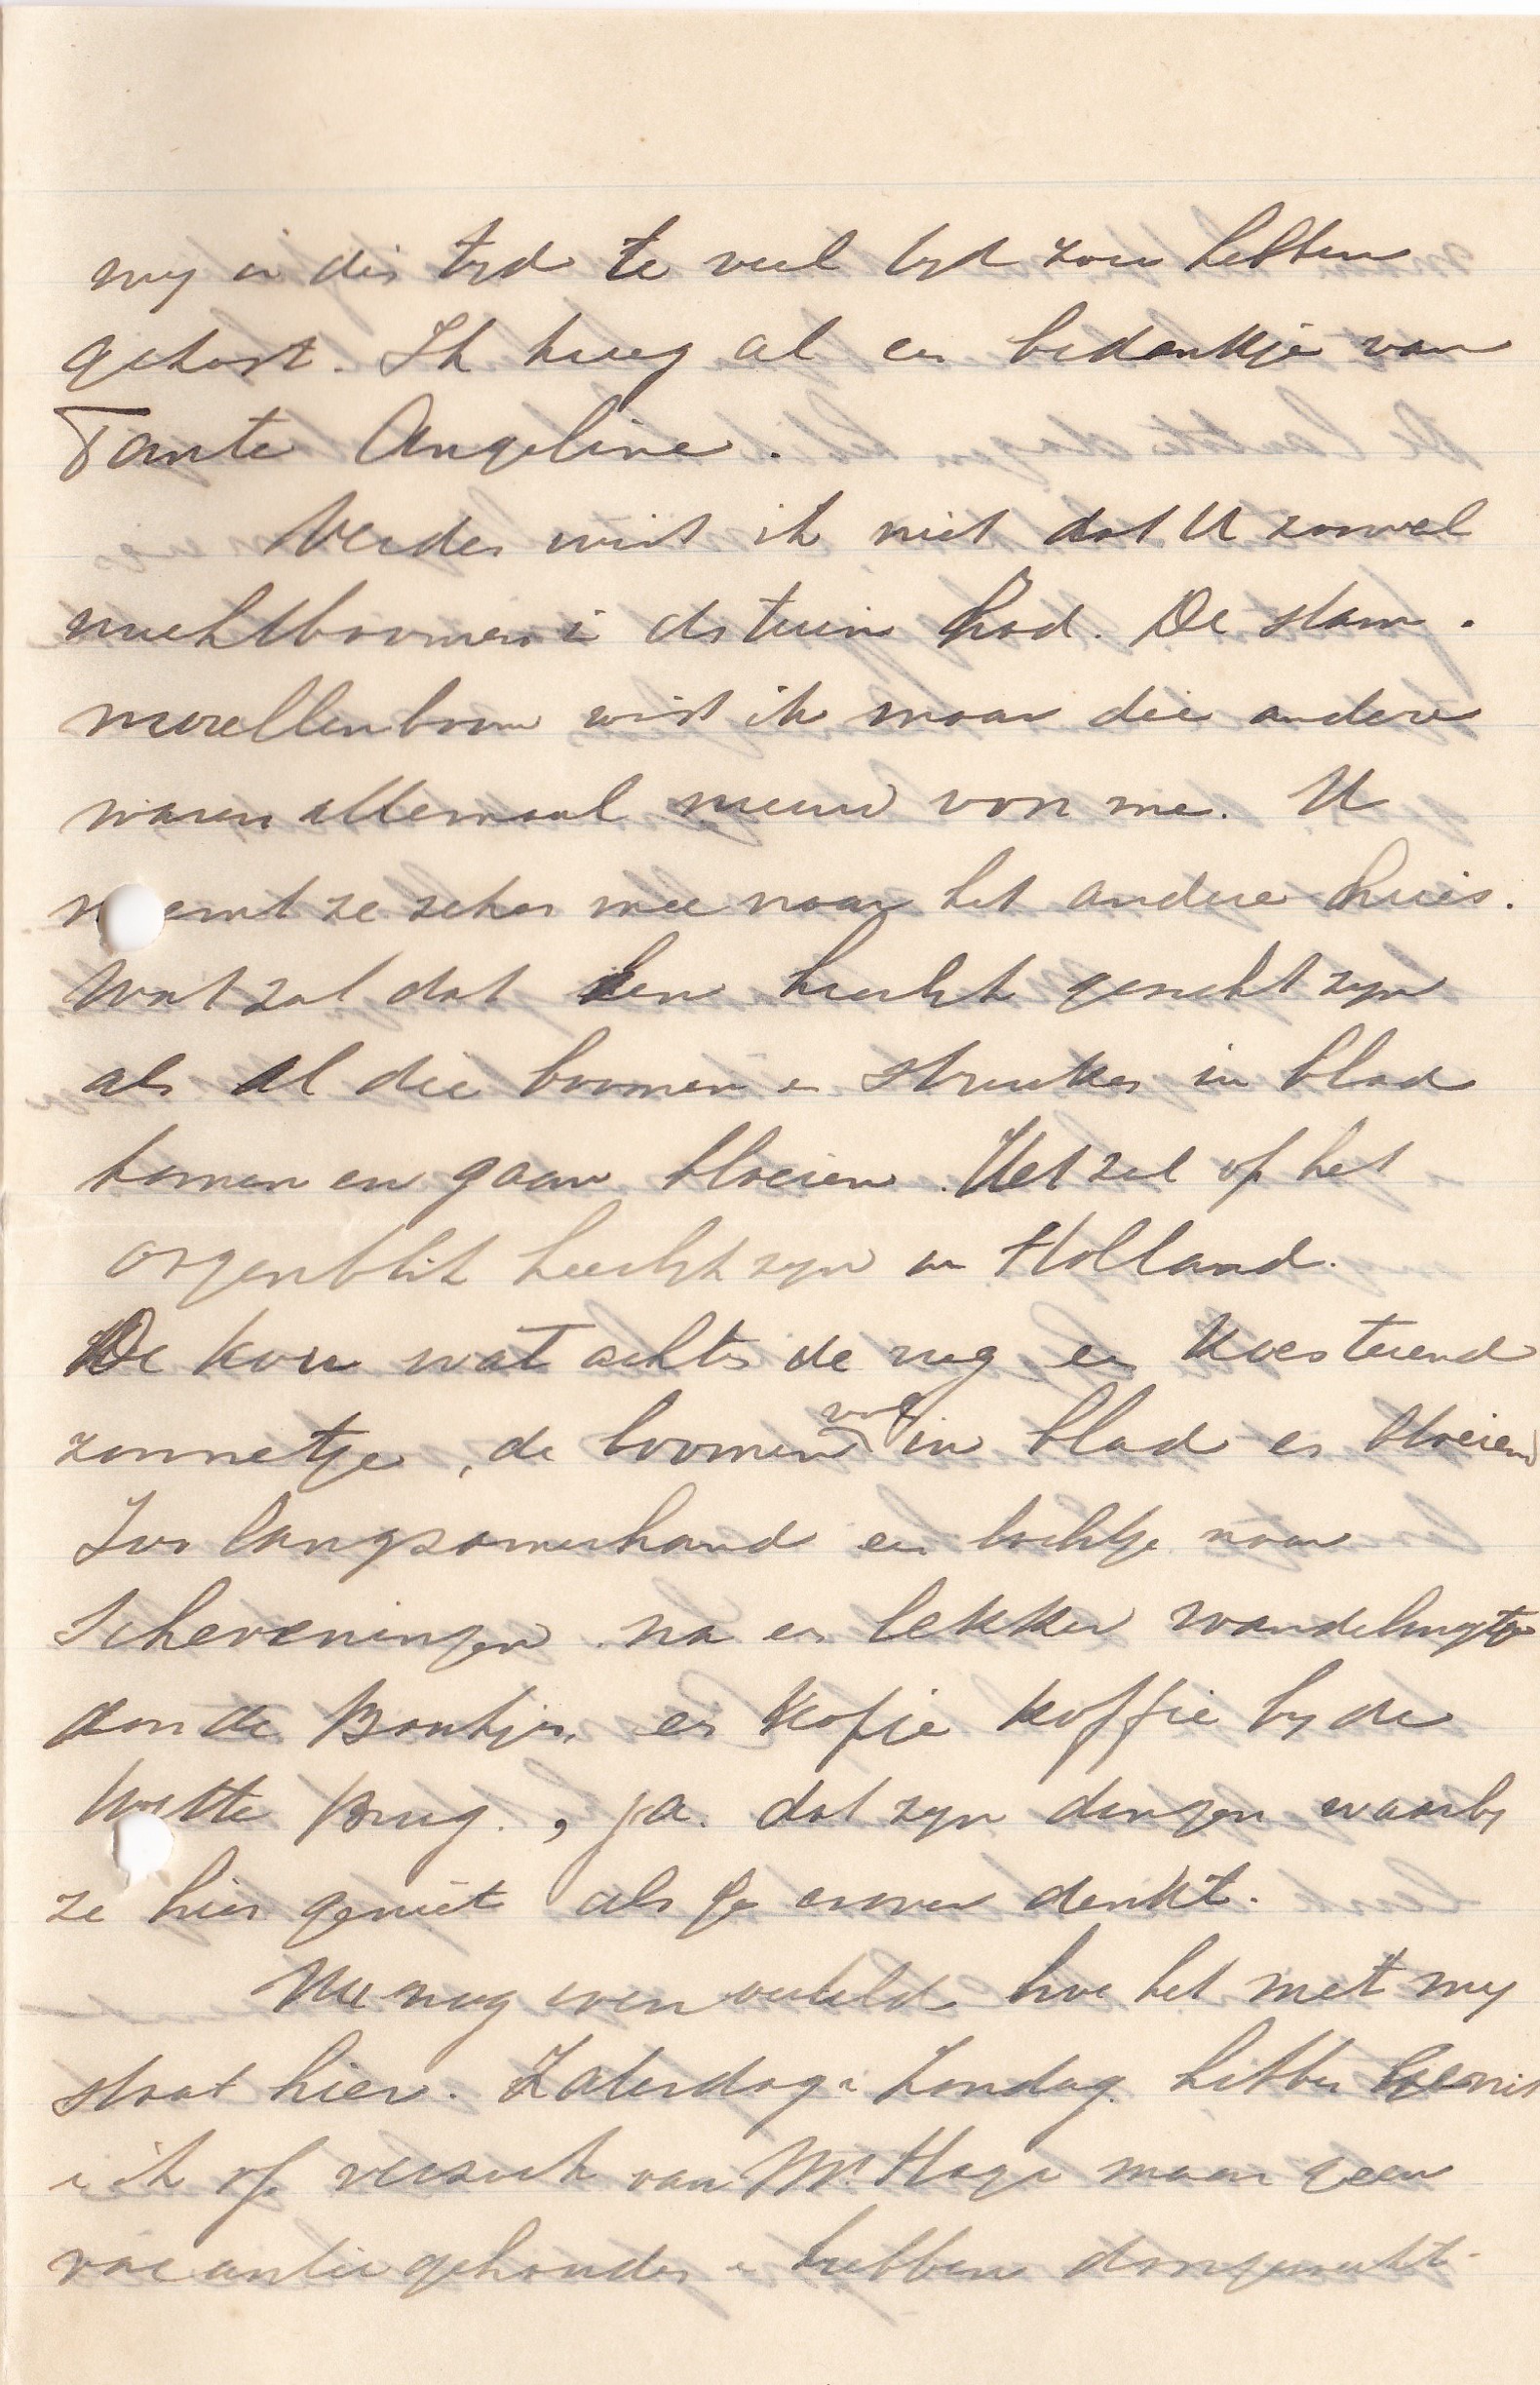 my in die tyd te veel tyd zou hebben
gekost. Ik kreeg al een bedankje van
Tante Angeline.
Verder wist ik niet dat U zooveel
vruchtboomen in de tuin had. De stam-
morellenboom wist ik maar die andere
waren allemaal nieuw voor me. U
neemt ze zeker mee naar het andere huis.
Wat zal dat een heerlyk gezicht zyn
als al die boomen en struiken in blad
komen en gaan bloeien. Het zal op het
oogenblik heerlyk zyn in Holland.
De kou wat achter de rug een koesterend
zonnetje, de boomen vol in blad en bloeiend
Zoo langzamerhand een tochtje naar
Scheveningen na een lekker wandelingetje
door de Boschjes, een kopje koffie by de
Witte Brug., ja. dat zyn dingen waarby
je hier geniet als je erover denkt.
Nu nog even verteld hoe het met my
staat hier. Zaterdag en Zondag hebben
en ik op verzoek van Mr. Haga maar geen
vacantie gehouden en hebben doorgewerkt.